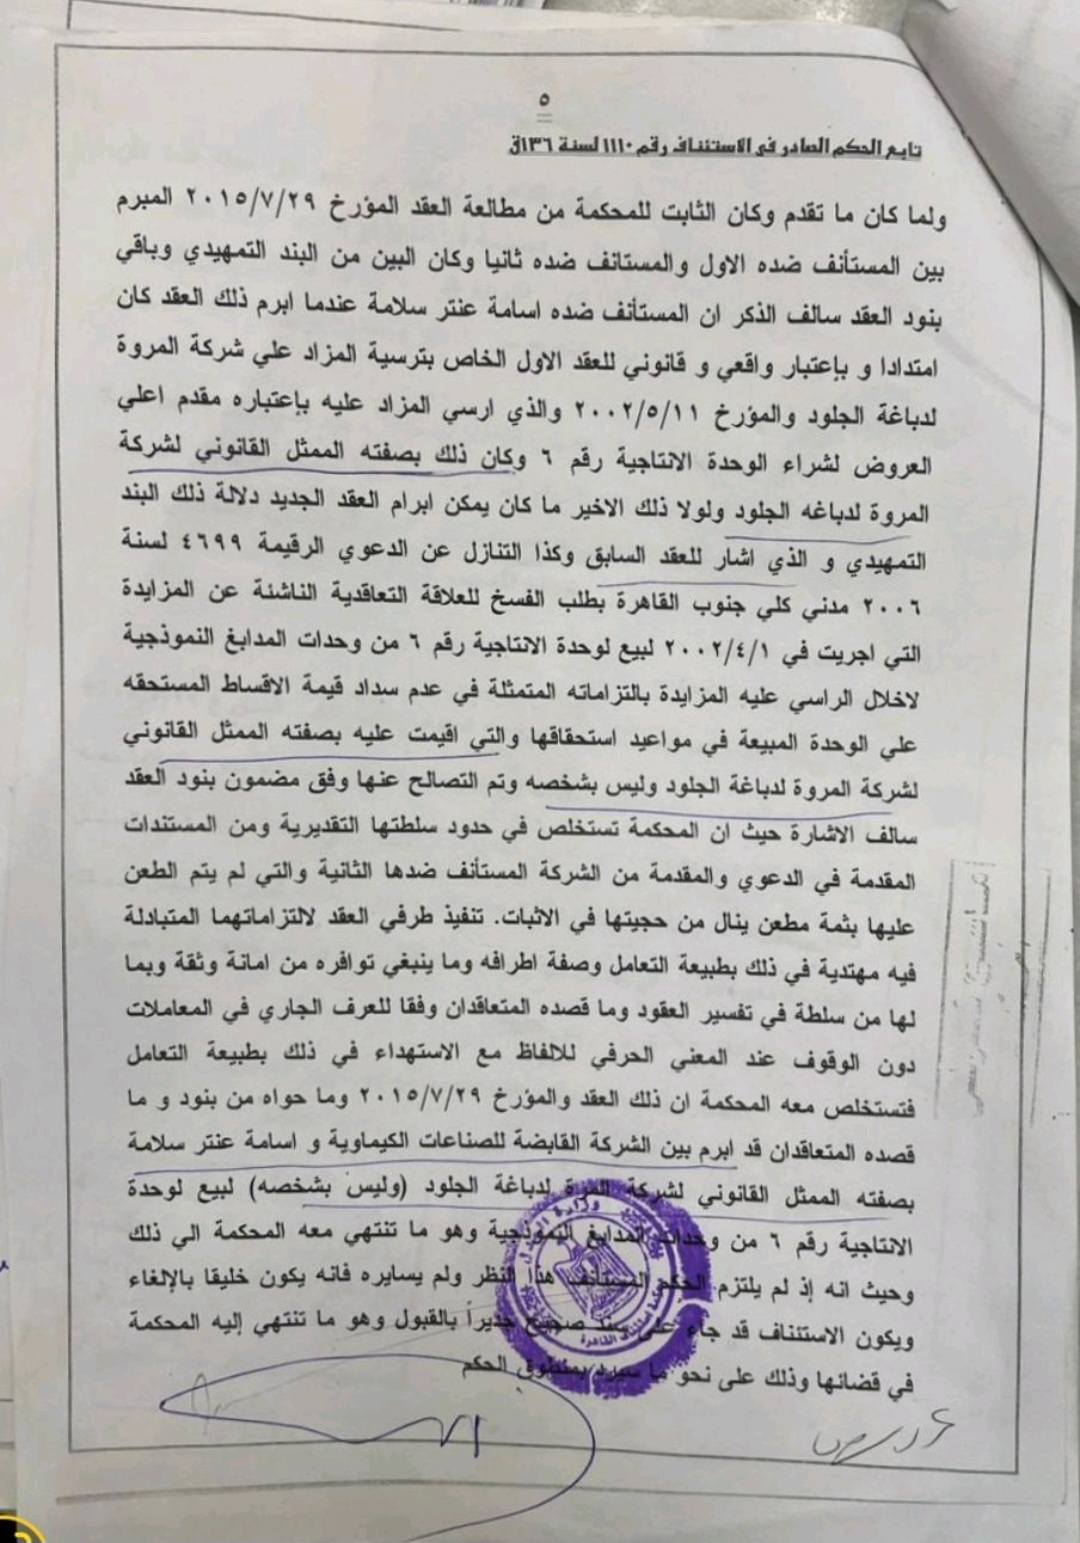 ٥
تابع الحكم الصادر في الاستئناف رقم ١١١٠ لسنة ١٣٦ق
ولما كان ما تقدم وكان الثابت للمحكمة من مطالعة العقد المؤرخ ٢٠١٥/٧/٢٩ المبرم
بين المستأنف ضده الاول والمستانف ضده ثانيا وكان البين من البند التمهيدي وباقي
بنود العقد سالف الذكر ان المستأنف ضده اسامة عنتر سلامة عندما ابرم ذلك العقد كان
امتدادا و بإعتبار واقعي و قانوني للعقد الاول الخاص بترسية المزاد علي شركة المروة
لدباغة الجلود والمؤرخ ٢٠٠٢/٥/١١ والذي ارسي المزاد عليه بإعتباره مقدم اعلي
العروض لشراء الوحدة الانتاجية رقم ٦ وكان ذلك بصفته الممثل القانوني لشركة
المروة لدباغه الجلود ولولا ذلك الاخير ما كان يمكن ابرام العقد الجديد دلالة ذلك البند
التمهيدي و الذي اشار للعقد السابق وكذا التنازل عن الدعوي الرقيمة ٤٦٩٩ لسنة
٢٠٠٦ مدني كلي جنوب القاهرة بطلب الفسخ للعلاقة التعاقدية الناشئة عن المزايدة
التي اجريت في ٢٠٠٢/٤/١ لبيع لوحدة الانتاجية رقم ٦ من وحدات المدابغ النموذجية
لاخلال الراسي عليه المزايدة بالتزاماته المتمثلة في عدم سداد قيمة الاقساط المستحقه
علي الوحدة المبيعة في مواعيد استحقاقها والتي اقيمت عليه بصفته الممثل القانوني
لشركة المروة لدباغة الجلود وليس بشخصه وتم التصالح عنها وفق مضمون بنود العقد
سالف الاشارة حيث ان المحكمة تستخلص في حدود سلطتها التقديرية ومن المستندات
المقدمة في الدعوي والمقدمة من الشركة المستأنف ضدها الثانية والتي لم يتم الطعن
عليها بثمة مطعن ينال من حجيتها في الاثبات. تنفيذ طرفي العقد لالتزاماتهما المتبادلة
فيه مهتدية في ذلك بطبيعة التعامل وصفة اطرافه وما ينبغي توافره من امانة وثقة وبما
لها من سلطة في تفسير العقود وما قصده المتعاقدان وفقا للعرف الجاري في المعاملات
دون الوقوف عند المعني الحرفي للالفاظ مع الاستهداء في ذلك بطبيعة التعامل
فتستخلص معه المحكمة ان ذلك العقد والمؤرخ ٢٠١٥/٧/٢٩ وما حواه من بنود و ما
قصده المتعاقدان قد ابرم بين الشركة القابضة للصناعات الكيماوية و اسامة عنتر سلامة
بصفته الممثل القانوني لشركة المرة لدباغة الجلود (وليس بشخصه) لبيع لوحدة
الانتاجية رقم ٦ من وحدات المدابغ النموذجية وهو ما تنتهي معه المحكمة الي ذلك
وحيث انه إذ لم يلتزم الحكم المستأنف هذا النظر ولم يسايره فانه يكون خليقا بالإلغاء
ويكون الاستئناف قد جاء على سند صحيح جديراً بالقبول وهو ما تنتهي إليه المحكمة
في قضائها وذلك على نحو ما سيرد بمنطوق الحكم
وزارة العدل
محكمة استئناف القاهرة